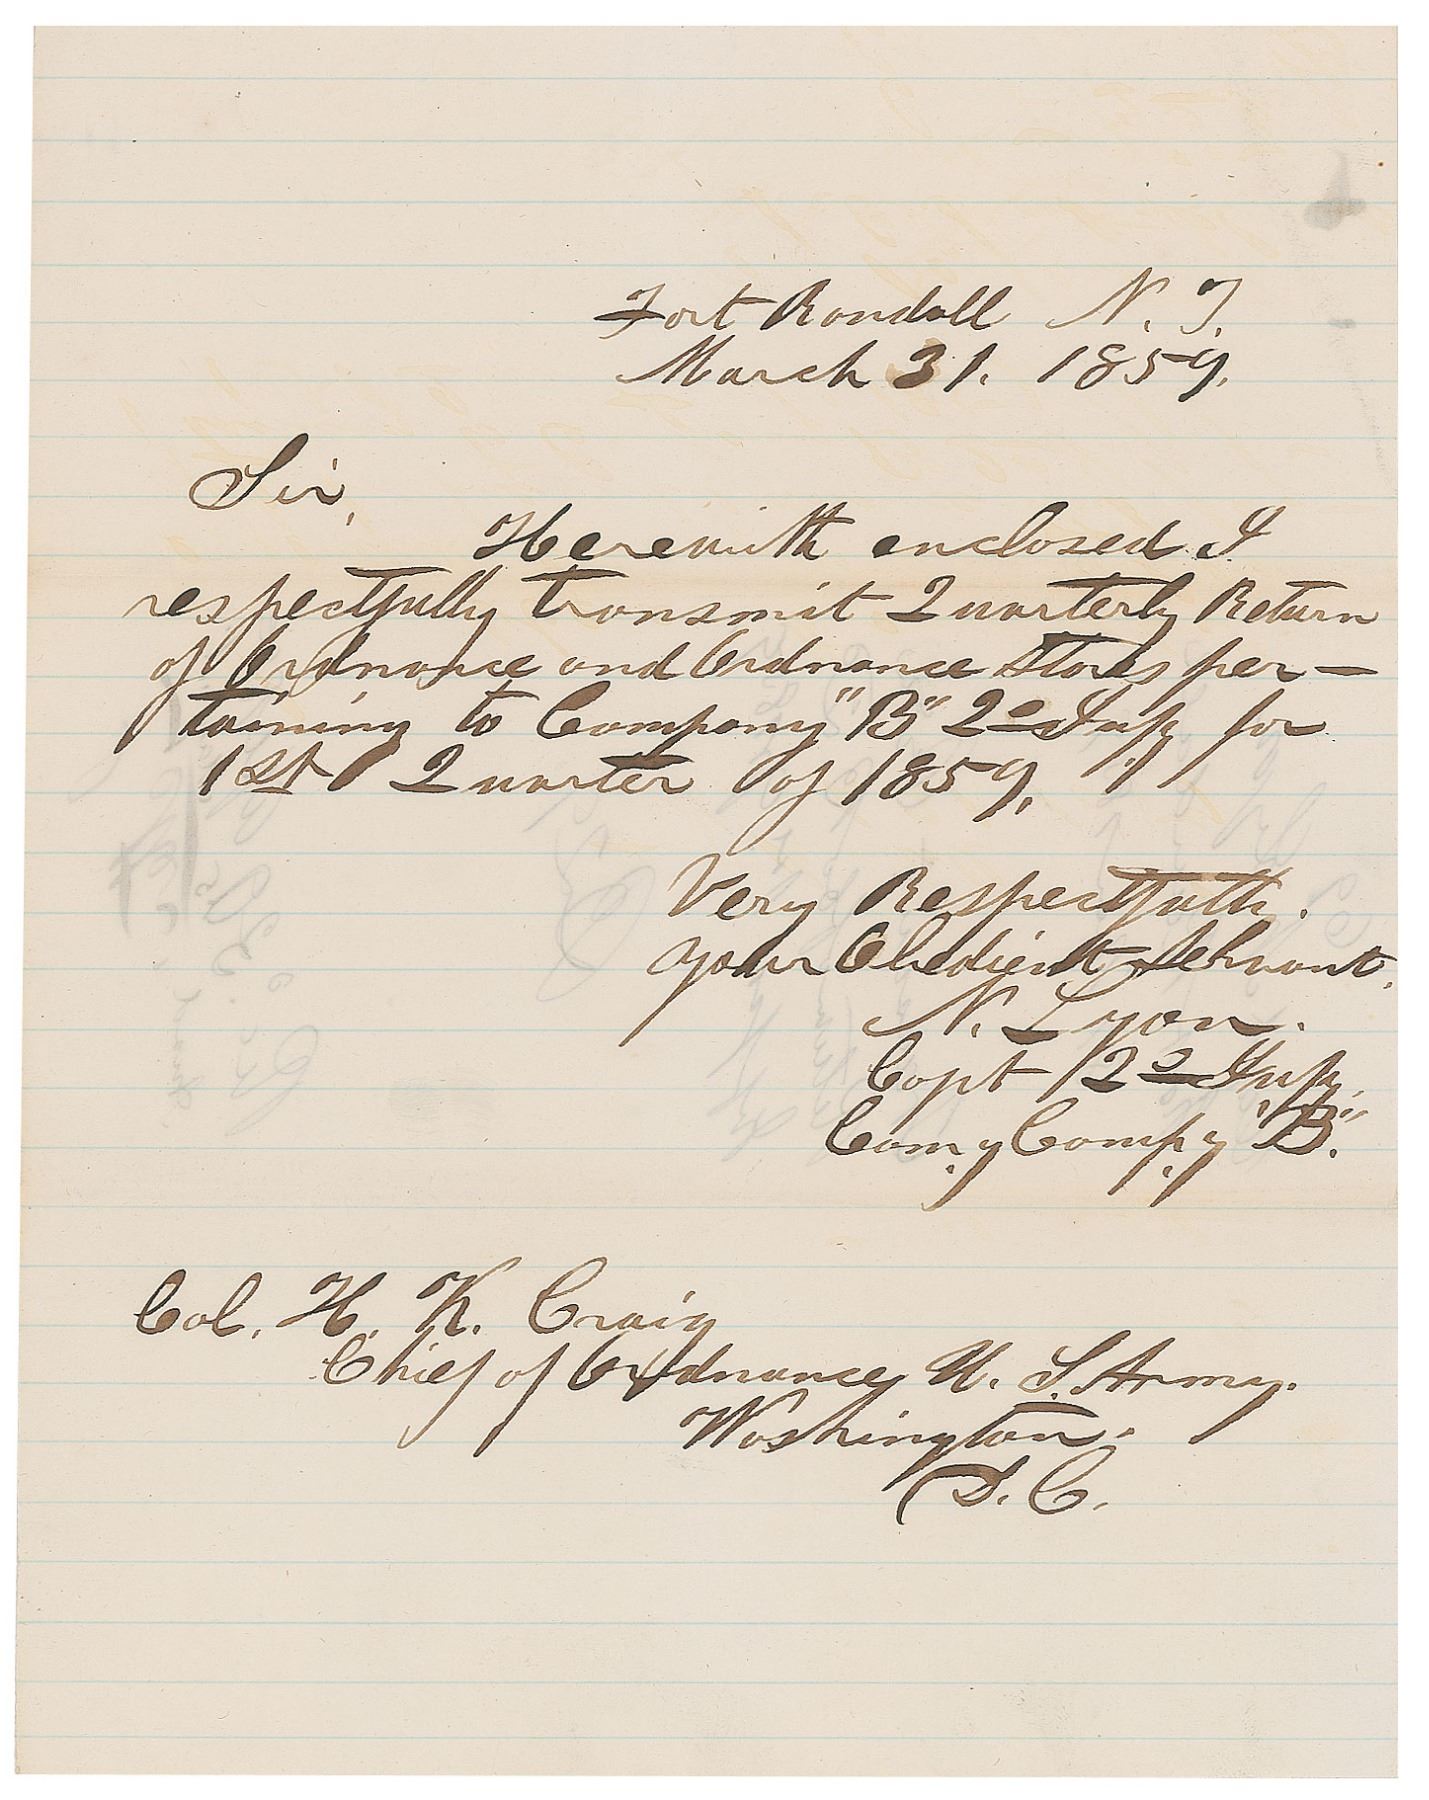 Fort Randall N. T.
March 31. 1859.
Sir,
Herewith enclosed I
respectfully transmit Quarterly Return
of Ordnance and Ordnance Stores per-
taining to Company "B" 2d Infy for
1st Quarter of 1859.
Very Respectfully.
your Obedient Servant.
N. Lyon.
Capt 2d Infy.
Com.y Comp.y "B".
Col. H. K. Craig
Chief of Ordnance U. S. Army.
Washington.
D. C.